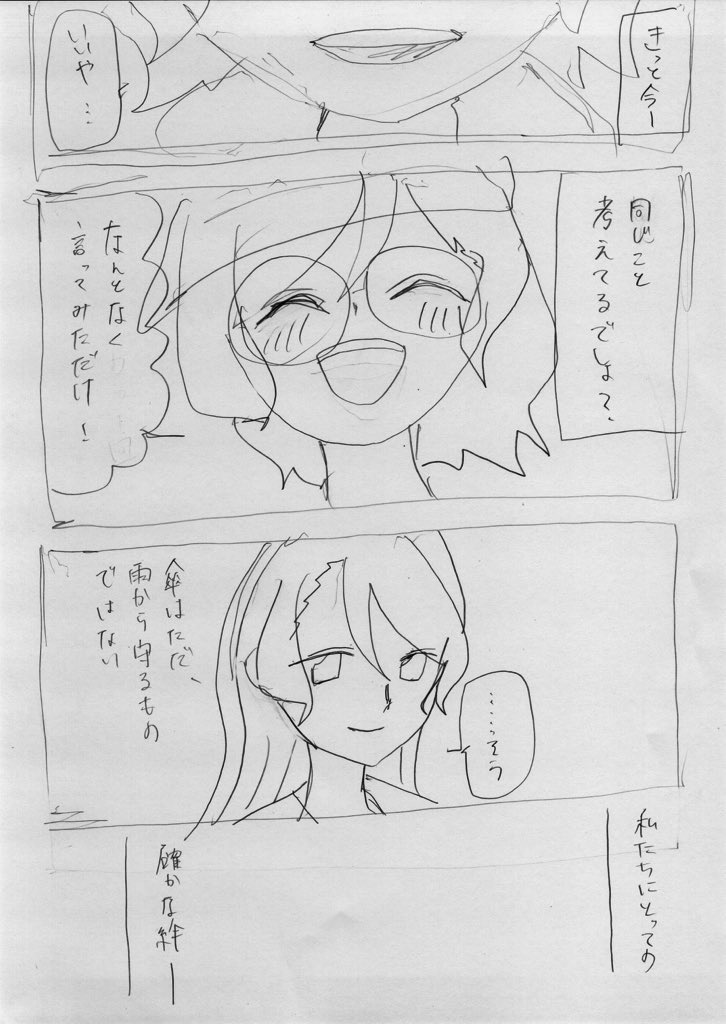 きっと今ー
いいや…
同じこと
考えてるでしょ？、
なんとなく
言ってみただけ！
……っそう
傘はただ、
雨から守るもの
ではない
私たちにとっての
確かな絆ー